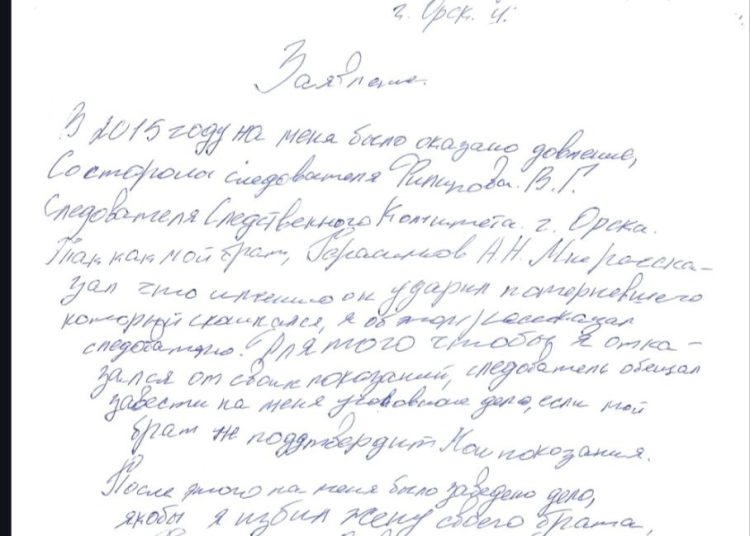 г. Орск.
Заявление.
В 2015 году на меня было оказано довление,
Со стороны следователя Филипова. В.Г.
Следователя Следственного Комитета. г. Орска.
Так как мой брат, Герасимов А.Н. Мне расска-
зал что именно он ударил потерпевшего
который скончался, я об этом рассказал
следователю. Для того чтобы я отка-
зался от своих показаний, следователь обещал
завести на меня уголовное дело, если мой
брат не поддтвердит Мои показания.
После этого на меня было заведено дело,
якобы я избил жену своего брата,